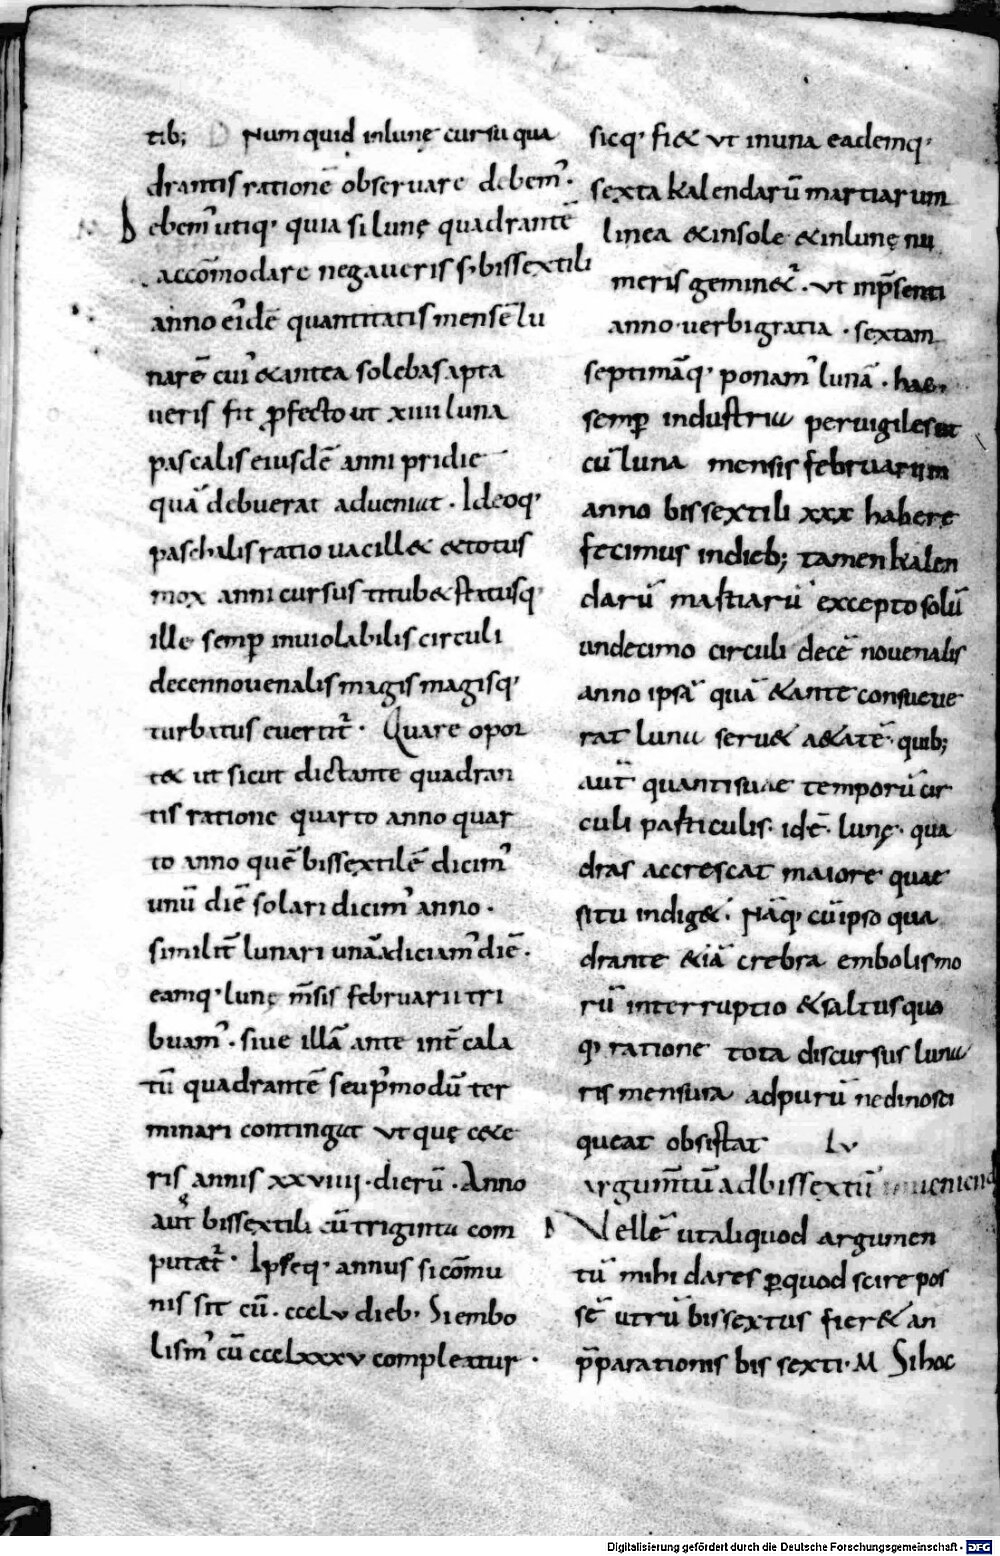 tib; D Num quid inlunę cursu qua
drantis rationē obseruare debem᾿.
Debem᾿ utiq᾿ quia si lunę quadrantē
accōmodare negaueris s; bissextili
anno ei᾿dē quantitatis mensē lu
narē cui᾿ &antea solebas apta
ueris fit ꝓfecto ut xiiii luna
pascalis eiusdē anni pridie
quā debuerat adueniat. Ideoq᾿
paschalis ratio uacill& &totus
mox anni cursus titub& statusq᾿
ille semꝑ inuiolabilis circuli
decennouenalis magis magisq᾿
turbatus euertit᾿. Quare opor
t& ut sicut dictante quadran
tis ratione quarto anno quar
to anno quē bissextilē dicim᾿
unū diē solari dicim᾿ anno.
similit̄ lunari unā adiciam᾿ diē.
eamq᾿ lunę m̄sis februarii tri
buam᾿. siue illā ante int̄cala
tū quadrantē seu p᾿modū ter
minari contingat ut quę c&e
ris annis xxviiii. dierū. Anno
aut̄ bissextili cū triginta com
putet᾿. Ipseq᾿ annus si cōmu
nis sit cū. ccclv dieb᾿ Si embo
lism᾿ cū ccclxxxv compleatur.
sicq᾿ fi& ut inuna eademq᾿
sexta kalendarū martiarum
linea &insole &inlunę nu
meris gemin&᾿. ut inp̄senti
anno uerbigratia. sextam
septimāq᾿ ponam᾿ lunā. hac
semꝑ industria peruigiles ut
cū luna mensis februarium
anno bissextili xxx habere
fecimus indieb; tamen kalen
darū martiarū excepto solū
undecimo circuli decē nouenalis
anno ipsā quā &ante consueue
rat luna seru& a&atē. quib;
aut̄ quantisuae temporū cir
culi particulis. idē. lunę. qua
dras accrescat maiore quae
situ indig&. Nāq᾿ cū ipso qua
drante &iā crebra embolismo
rū interruptio &saltus quo
q᾿ ratione tota discursus luna
ris mensura adpurū nedinosci
queat obsistat LV
Argum̄tū adbissextū inueniend
Vellē utaliquod argumen
tū mihi dares ꝑquod scire pos
sē utrū bissextus fier& an
p̄parationis bis sexti. M Si hoc